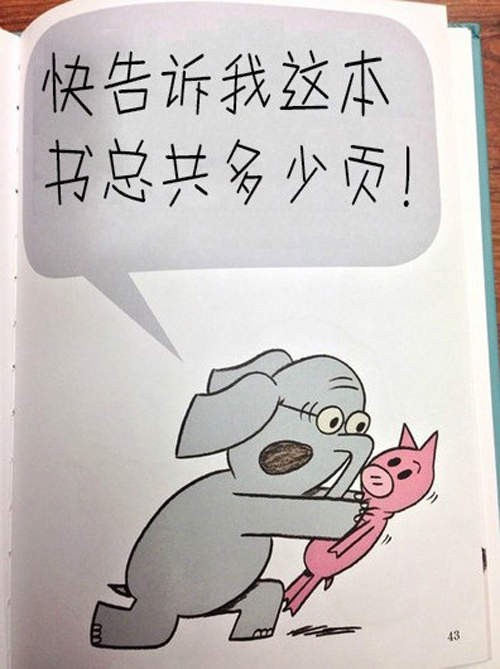 快告诉我这本
书总共多少页!
43